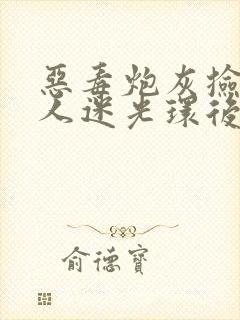 惡毒炮灰撿
人迷光環後
俞德寶